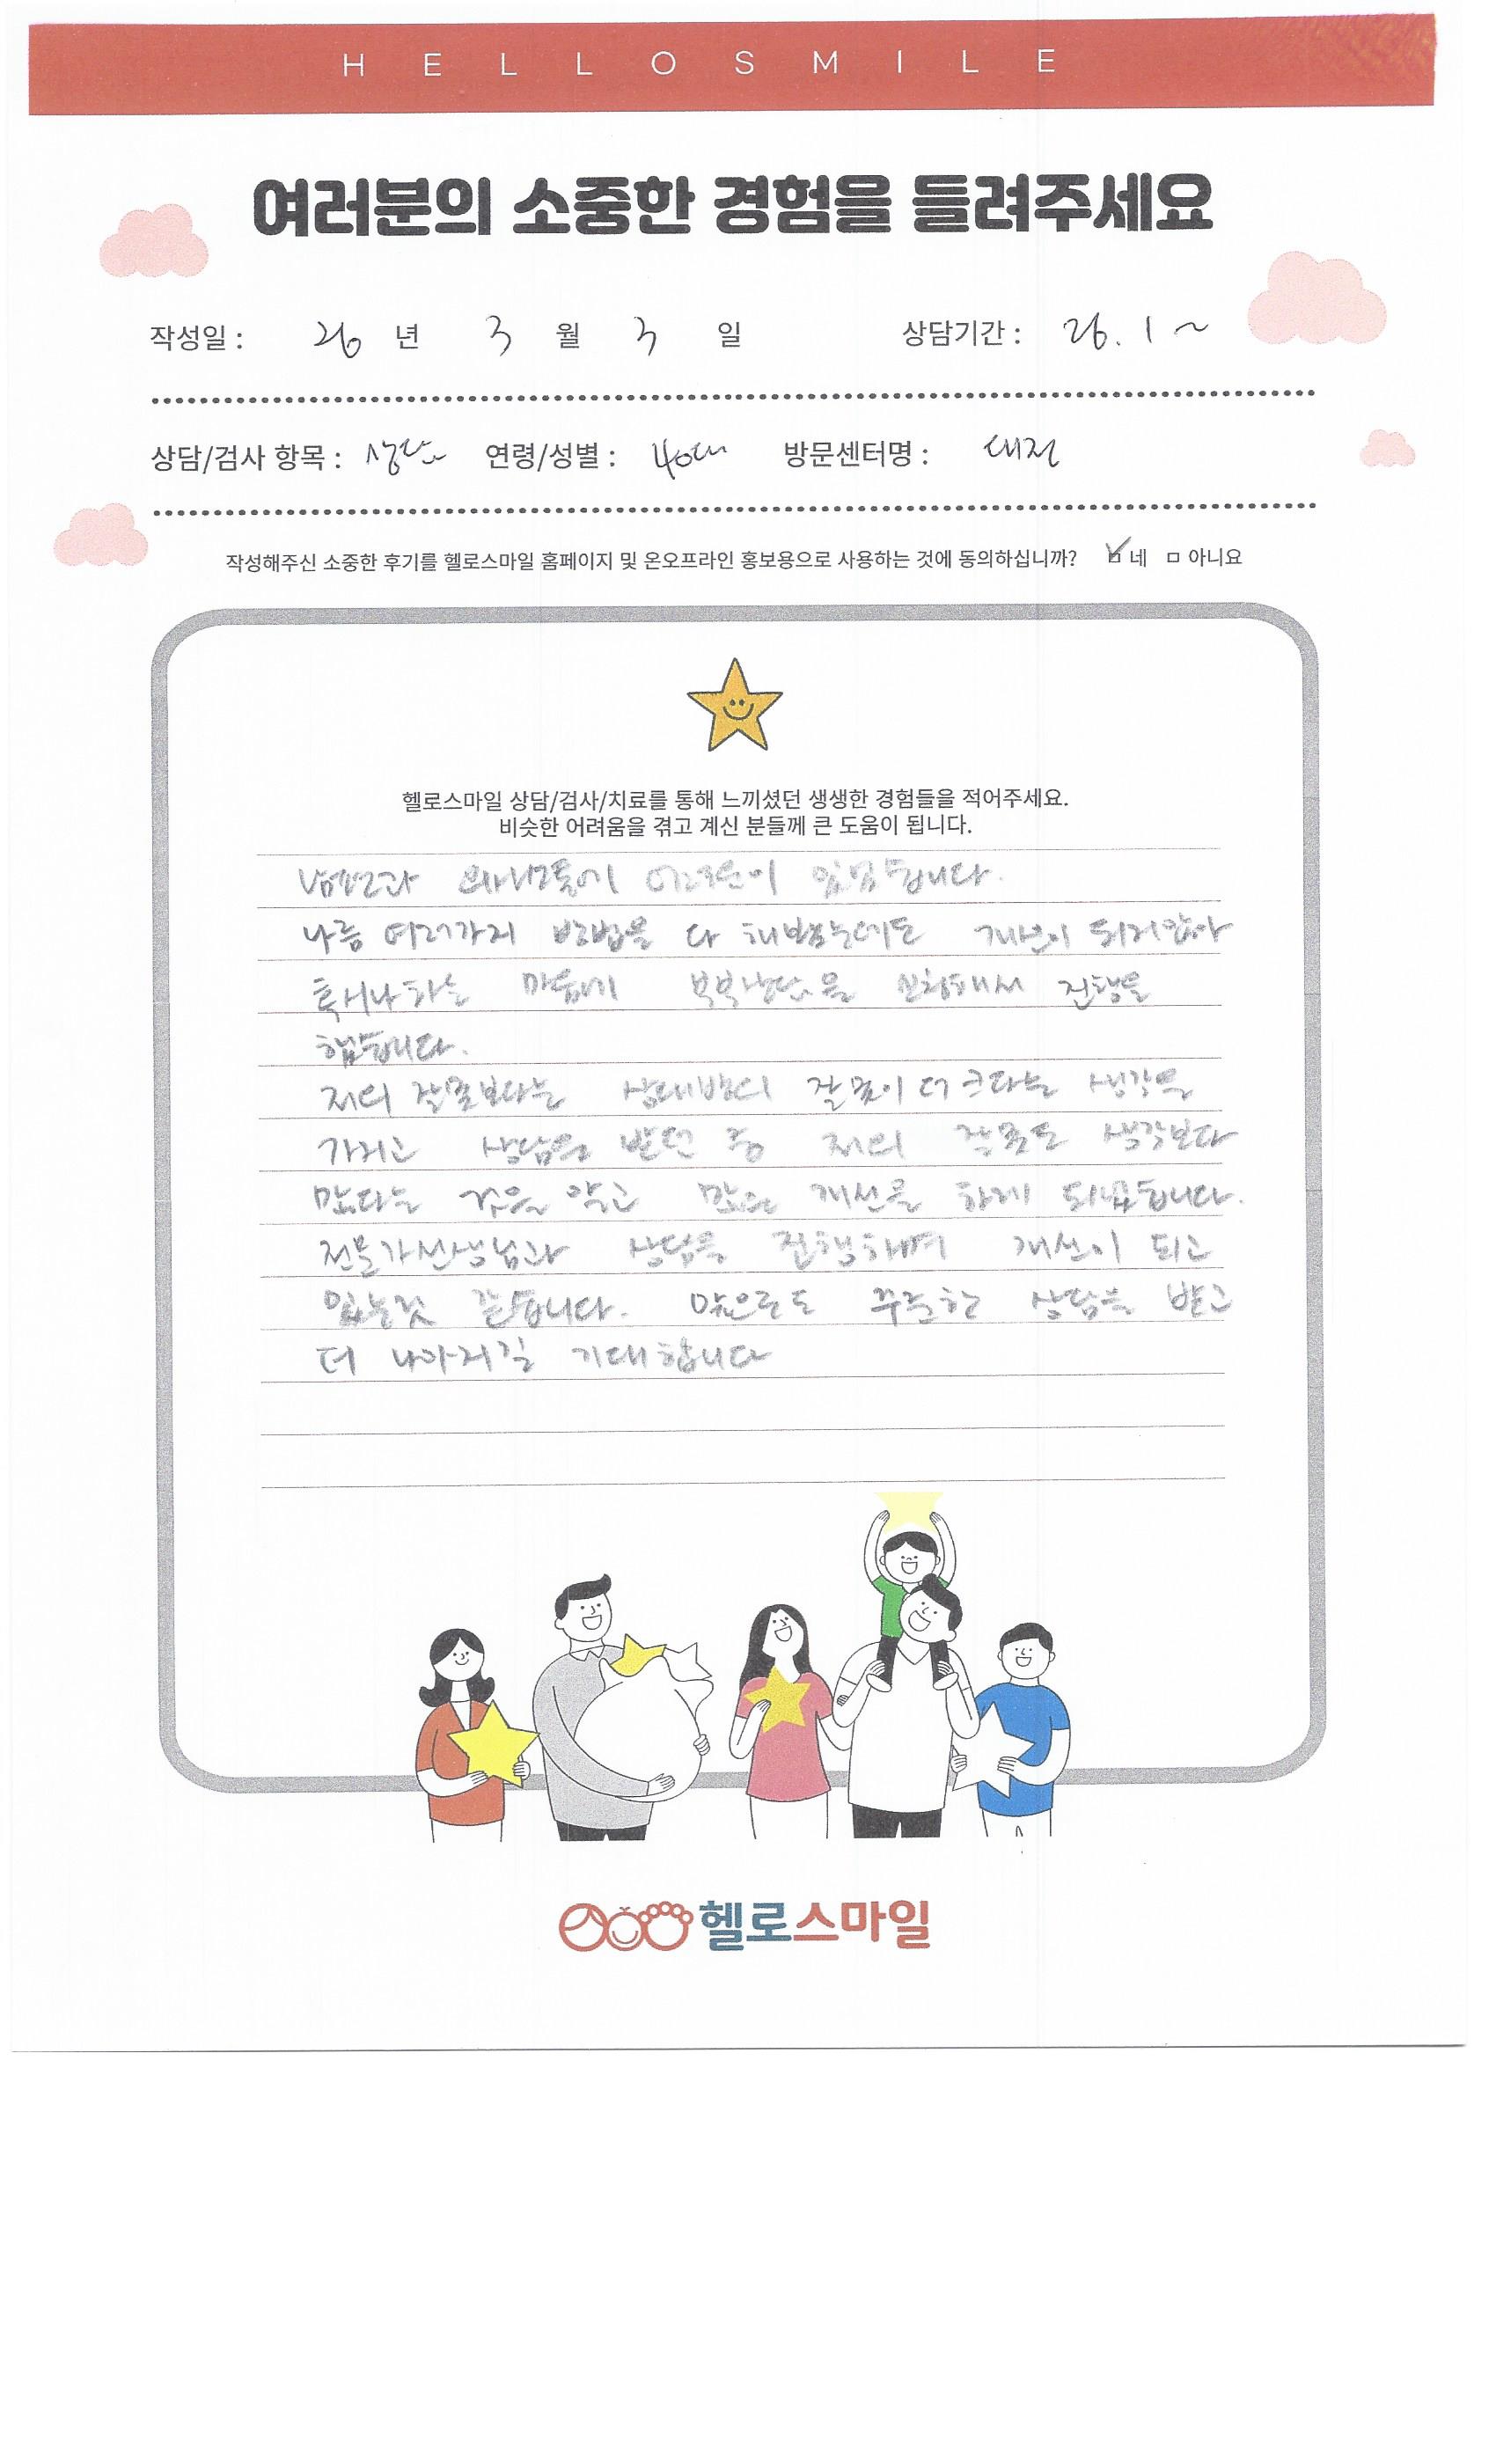 HELLOSMILE
여러분의 소중한 경험을 들려주세요
작성일 : 26 년 3 월 3 일 상담기간 : 26. 1 ~
상담/검사 항목 : 상담 연령/성별 : 40대 방문센터명 : 대전
작성해주신 소중한 후기를 헬로스마일 홈페이지 및 온오프라인 홍보용으로 사용하는 것에 동의하십니까? 네 아니요
헬로스마일 상담/검사/치료를 통해 느끼셨던 생생한 경험들을 적어주세요.
비슷한 어려움을 겪고 계신 분들께 큰 도움이 됩니다.
남편과 어려움이 있었습니다.
나름 여러가지 방법을 다 해봤는데도 개선이 되지않아
혹시나하는 마음에 부부상담을 신청해서 진행을
했습니다.
저의 잘못보다는 상대방의 잘못이 더 크다는 생각을
가지고 상담을 받던 중 저의 잘못도 생각보다
많다는 것을 알고 많은 개선을 하게 되었습니다.
전문가선생님과 상담을 진행하며 개선이 되고
있는것 같습니다. 앞으로도 꾸준한 상담을 받고
더 나아지길 기대합니다
헬로스마일